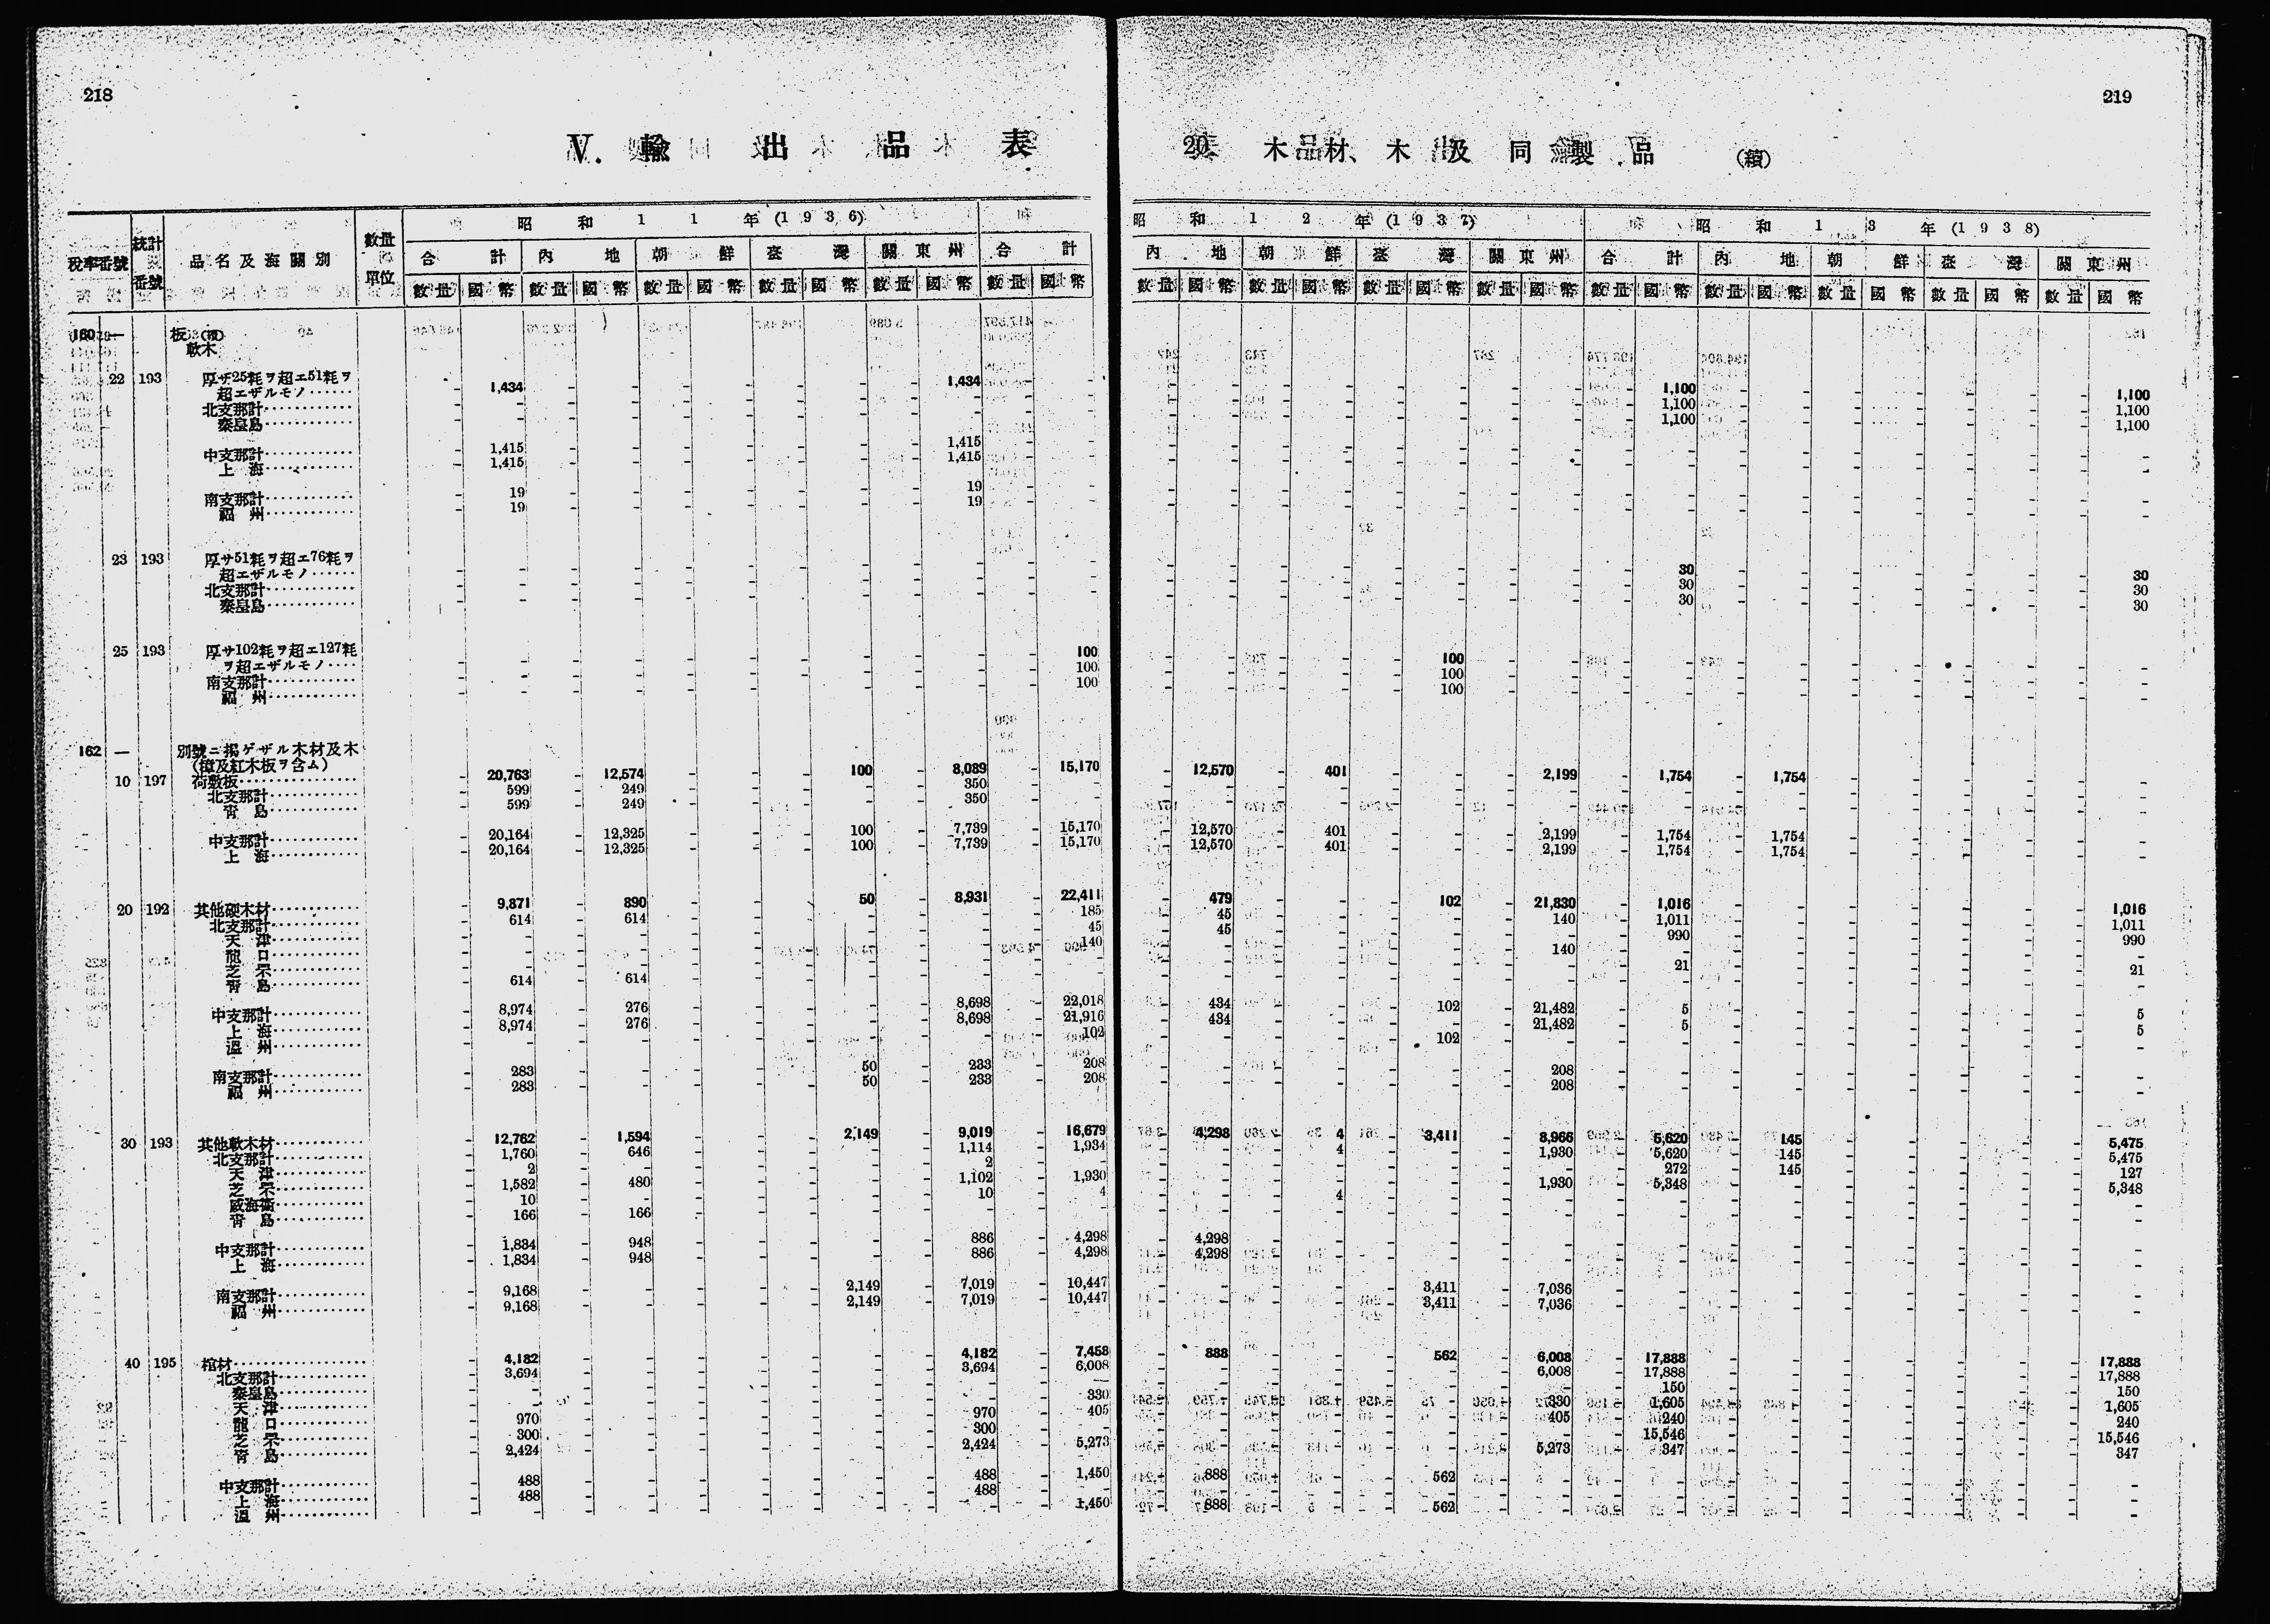 218
V. 輸 出 品 表
稅率番號 統計番號 品名及海關別 數量單位 昭和11年(1936)
合計 內地 朝鮮 臺灣 關東州 合計
數量 國幣 數量 國幣 數量 國幣 數量 國幣 數量 國幣 數量 國幣
160 —
軟木
22 193 厚サ25粍ヲ超エ51粍ヲ
超エザルモノ…… - 1,434 - - - - - - - 1,434 - -
北支那計………… - - - - - - - - - - - -
秦皇島………… - - - - - - - - - - - -
中支那計………… - 1,415 - - - - - - - 1,415 - -
上海………… - 1,415 - - - - - - - 1,415 - -
南支那計………… - 19 - - - - - - - 19 - -
福州………… - 19 - - - - - - - 19 - -
23 193 厚サ51粍ヲ超エ76粍ヲ
超エザルモノ…… - - - - - - - - - - - -
北支那計………… - - - - - - - - - - - -
秦皇島………… - - - - - - - - - - - -
25 193 厚サ102粍ヲ超エ127粍
ヲ超エザルモノ…… - - - - - - - - - - - 100
南支那計………… - - - - - - - - - - - 100
福州………… - - - - - - - - - - - 100
162 — 別號ニ揭ゲザル木材及木
(樟及紅木板ヲ含ム)
10 197 荷敷板………… - 20,763 - 12,574 - - - 100 - 8,089 - 15,170
北支那計………… - 599 - 249 - - - - - 350 - -
靑島………… - 599 - 249 - - - - - 350 - -
中支那計………… - 20,164 - 12,325 - - - 100 - 7,739 - 15,170
上海………… - 20,164 - 12,325 - - - 100 - 7,739 - 15,170
20 192 其他硬木材………… - 9,871 - 890 - - - 50 - 8,931 - 22,411
北支那計………… - 614 - 614 - - - - - - - 185
天津………… - - - - - - - - - - - 45
龍口………… - - - - - - - - - - - 140
芝罘………… - - - - - - - - - - - -
靑島………… - 614 - 614 - - - - - - - -
中支那計………… - 8,974 - 276 - - - - - 8,698 - 22,018
上海………… - 8,974 - 276 - - - - - 8,698 - 21,916
溫州………… - - - - - - - - - - - 102
南支那計………… - 283 - - - - - 50 - 233 - 208
福州………… - 283 - - - - - 50 - 233 - 208
30 193 其他軟木材………… - 12,762 - 1,594 - - - 2,149 - 9,019 - 16,679
北支那計………… - 1,760 - 646 - - - - - 1,114 - 1,934
天津………… - 2 - - - - - - - 2 - -
芝罘………… - 1,582 - 480 - - - - - 1,102 - 1,930
威海衞………… - 10 - - - - - - - 10 - 4
靑島………… - 166 - 166 - - - - - - - -
中支那計………… - 1,834 - 948 - - - - - 886 - 4,298
上海………… - 1,834 - 948 - - - - - 886 - 4,298
南支那計………… - 9,168 - - - - - 2,149 - 7,019 - 10,447
福州………… - 9,168 - - - - - 2,149 - 7,019 - 10,447
40 195 棺材………… - 4,182 - - - - - - - 4,182 - 7,458
北支那計………… - 3,694 - - - - - - - 3,694 - 6,008
秦皇島………… - - - - - - - - - - - -
天津………… - - - - - - - - - - - 330
龍口………… - 970 - - - - - - - 970 - 405
芝罘………… - 300 - - - - - - - 300 - -
靑島………… - 2,424 - - - - - - - 2,424 - 5,273
中支那計………… - 488 - - - - - - - 488 - 1,450
上海………… - 488 - - - - - - - 488 - -
溫州………… - - - - - - - - - - - 1,450
219
20. 木材、木及同製品 (續)
昭和12年(1937) 昭和13年(1938)
內地 朝鮮 臺灣 關東州 合計 內地 朝鮮 臺灣 關東州
數量 國幣 數量 國幣 數量 國幣 數量 國幣 數量 國幣 數量 國幣 數量 國幣 數量 國幣 數量 國幣
- - - - - - - - - 1,100 - - - - - - - 1,100
- - - - - - - - - 1,100 - - - - - - - 1,100
- - - - - - - - - 1,100 - - - - - - - 1,100
- - - - - - - - - - - - - - - - - -
- - - - - - - - - - - - - - - - - -
- - - - - - - - - - - - - - - - - -
- - - - - - - - - - - - - - - - - -
- - - - - - - - - 30 - - - - - - - 30
- - - - - - - - - 30 - - - - - - - 30
- - - - - - - - - 30 - - - - - - - 30
- - - - - 100 - - - - - - - - - - - -
- - - - - 100 - - - - - - - - - - - -
- - - - - 100 - - - - - - - - - - - -
- 12,570 - 401 - - - 2,199 - 1,754 - 1,754 - - - - - -
- - - - - - - - - - - - - - - - - -
- - - - - - - - - - - - - - - - - -
- 12,570 - 401 - - - 2,199 - 1,754 - 1,754 - - - - - -
- 12,570 - 401 - - - 2,199 - 1,754 - 1,754 - - - - - -
- 479 - - - 102 - 21,830 - 1,016 - - - - - - - 1,016
- 45 - - - - - 140 - 1,011 - - - - - - - 1,011
- 45 - - - - - - - 990 - - - - - - - 990
- - - - - - - 140 - - - - - - - - - -
- - - - - - - - - 21 - - - - - - - 21
- - - - - - - - - - - - - - - - - -
- 434 - - - 102 - 21,482 - 5 - - - - - - - 5
- 434 - - - - - 21,482 - 5 - - - - - - - 5
- - - - - 102 - - - - - - - - - - - -
- - - - - - - 208 - - - - - - - - - -
- - - - - - - 208 - - - - - - - - - -
- 4,298 - 4 - 3,411 - 8,966 - 5,620 - 145 - - - - - 5,475
- - - 4 - - - 1,930 - 5,620 - 145 - - - - - 5,475
- - - - - - - - - 272 - 145 - - - - - 127
- - - - - - - 1,930 - 5,348 - - - - - - - 5,348
- - - 4 - - - - - - - - - - - - - -
- - - - - - - - - - - - - - - - - -
- 4,298 - - - - - - - - - - - - - - - -
- 4,298 - - - - - - - - - - - - - - - -
- - - - - 3,411 - 7,036 - - - - - - - - - -
- - - - - 3,411 - 7,036 - - - - - - - - - -
- 888 - - - 562 - 6,008 - 17,888 - - - - - - - 17,888
- - - - - - - 6,008 - 17,888 - - - - - - - 17,888
- - - - - - - - - 150 - - - - - - - 150
- - - - - - - 330 - 1,605 - - - - - - - 1,605
- - - - - - - 405 - 240 - - - - - - - 240
- - - - - - - - - 15,546 - - - - - - - 15,546
- - - - - - - 5,273 - 347 - - - - - - - 347
- 888 - - - 562 - - - - - - - - - - - -
- - - - - - - - - - - - - - - - - -
- 888 - - - 562 - - - - - - - - - - - -